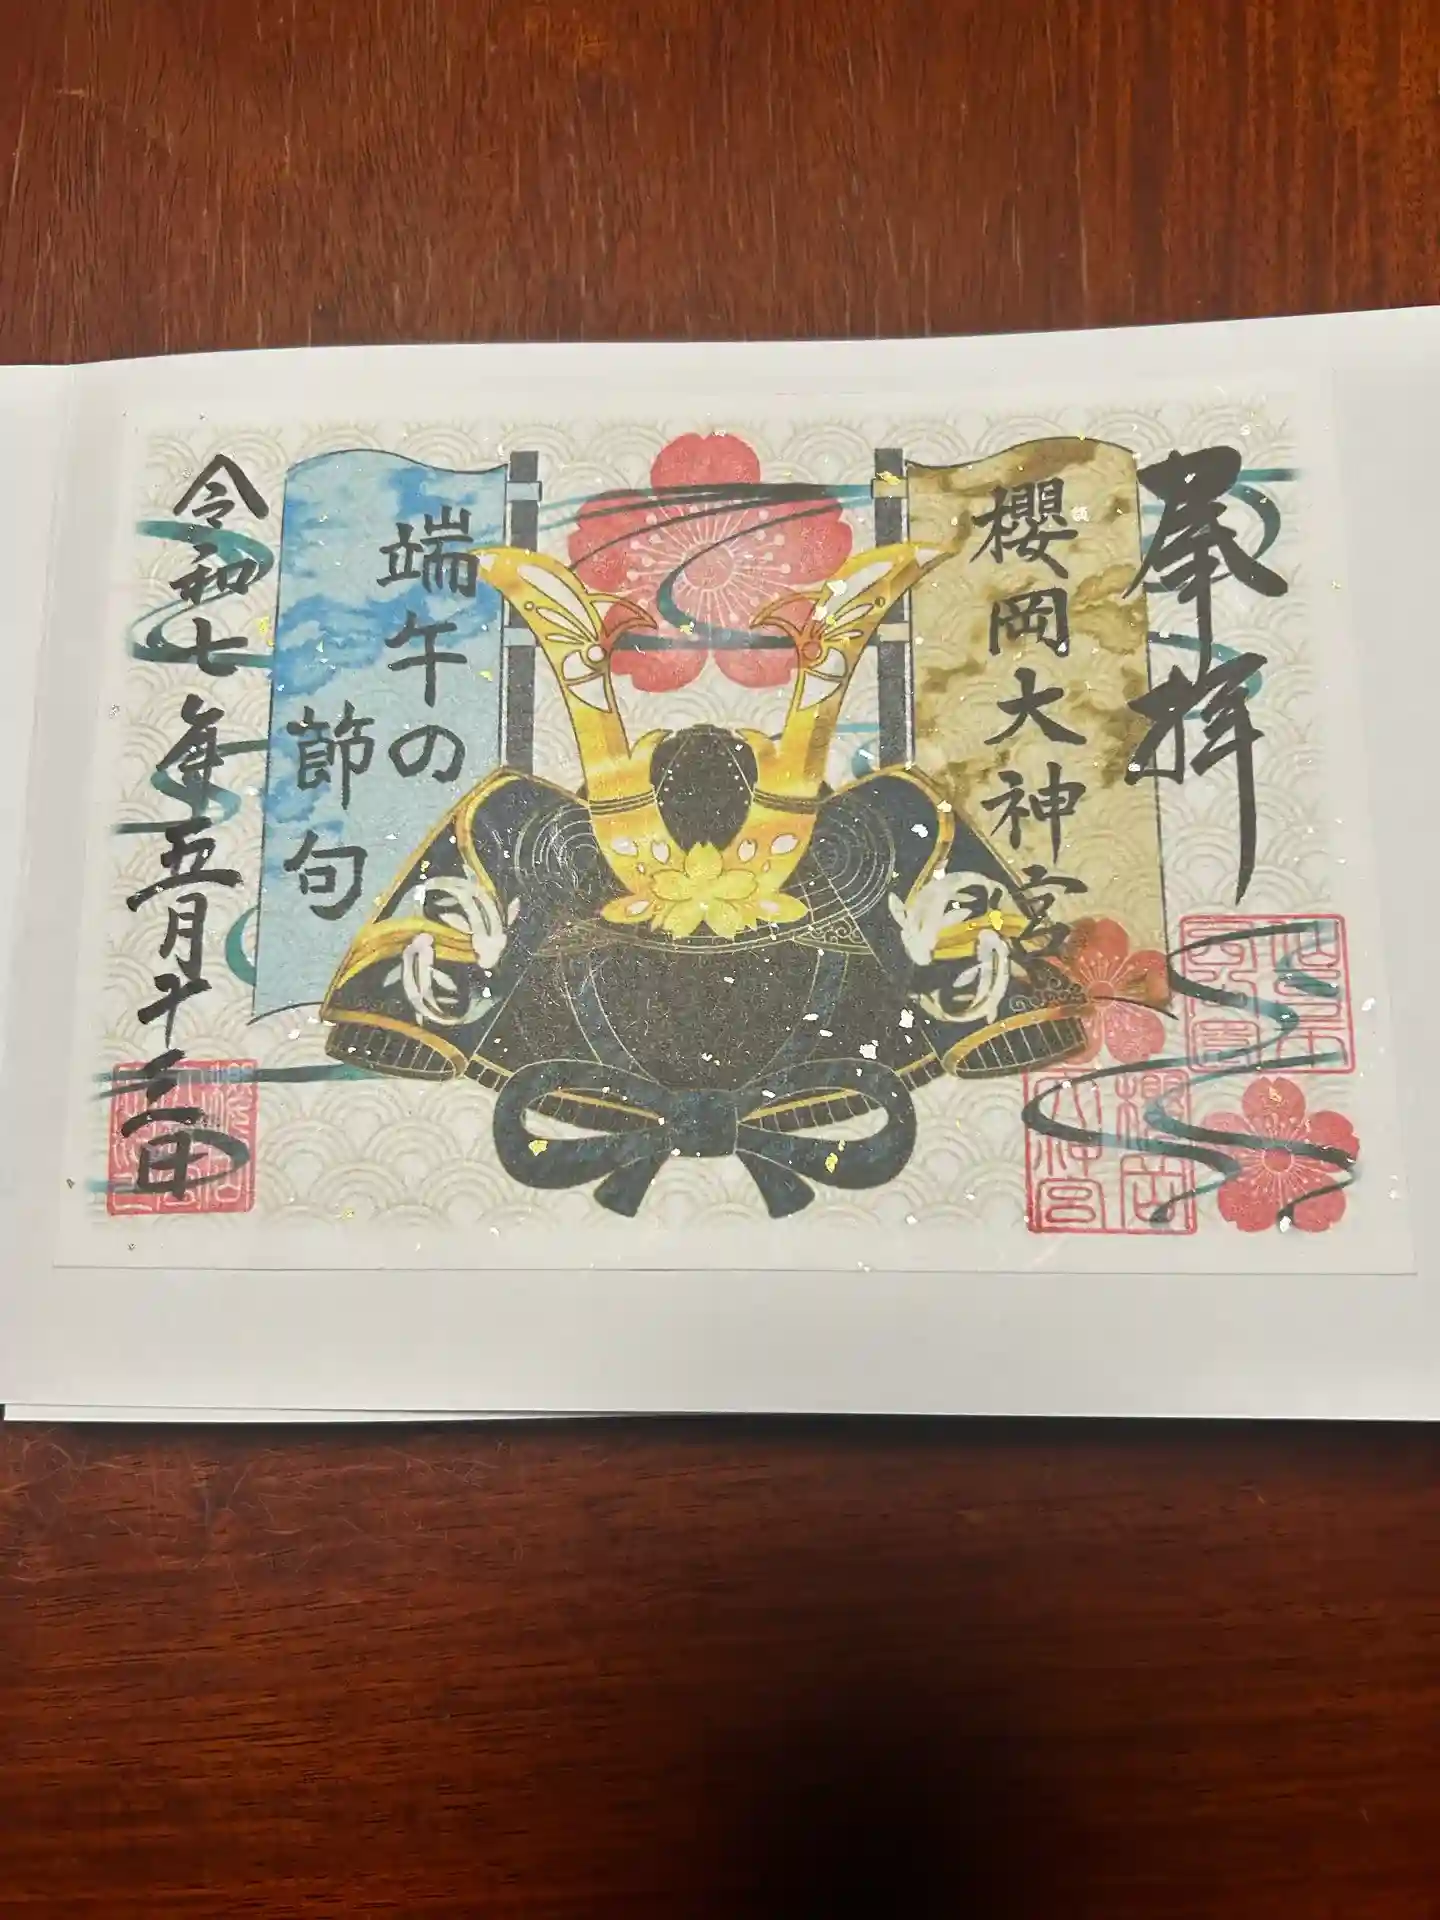 奉拝
櫻岡大神宮
端午の
節句
令和七年五月十二日
櫻岡
大神宮